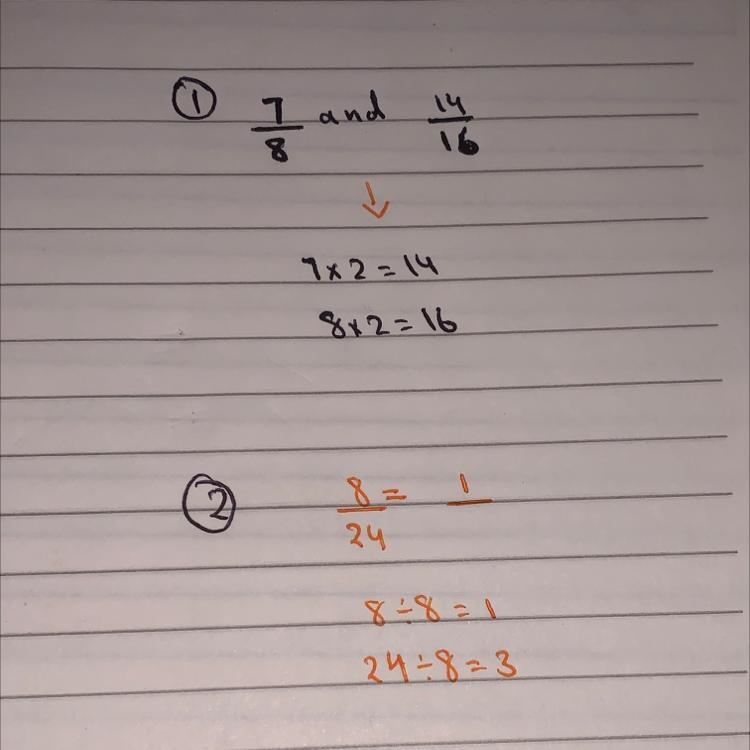 ① 7/8 and 14/16
↓
7 x 2 = 14
8 x 2 = 16
② 8/24 = 1/
8 ÷ 8 = 1
24 ÷ 8 = 3